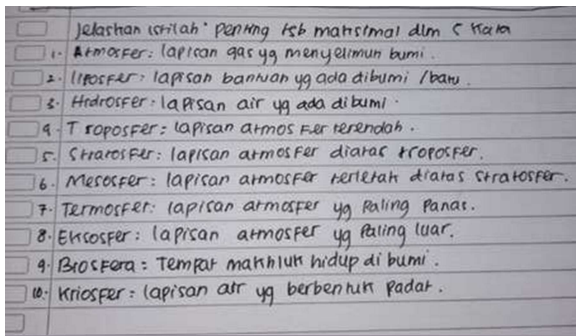 Jelaskan istilah² penting tsb maksimal dlm 5 kata
1. Atmosfer: lapisan gas yg menyelimuti bumi.
2. liposfer: lapisan bantuan yg ada dibumi /batu.
3. Hidrosfer: lapisan air yg ada dibumi.
4. Troposfer: lapisan atmosfer terendah.
5. Stratosfer: lapisan atmosfer diatas troposfer.
6. Mesosfer: lapisan atmosfer terletak diatas stratosfer.
7. Termosfer: lapisan atmosfer yg paling panas.
8. Eksosfer: lapisan atmosfer yg paling luar.
9. Biosfera: Tempat makhluk hidup di bumi.
10. Kriosfer: lapisan air yg berbentuk padat.